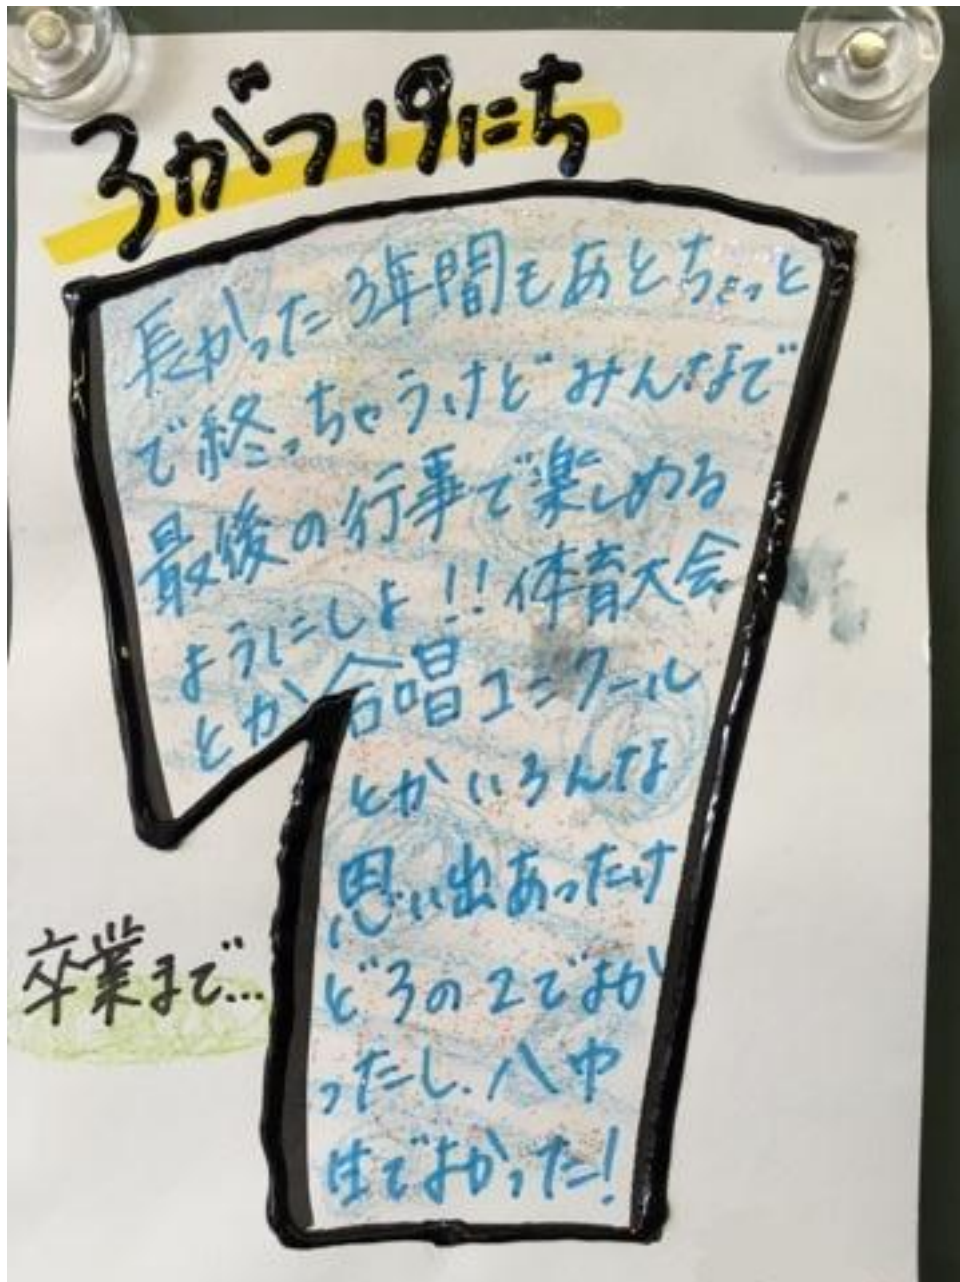 3がつ19にち
長かった3年間もあとちょっと
で終っちゃうけどみんなで
最後の行事で楽しめる
ようにしよ!!体育大会
とか合唱コンクール
とかいろんな
思い出あったけ
ど3の2でよか
ったし、八中
生でよかった!
卒業まで...
7